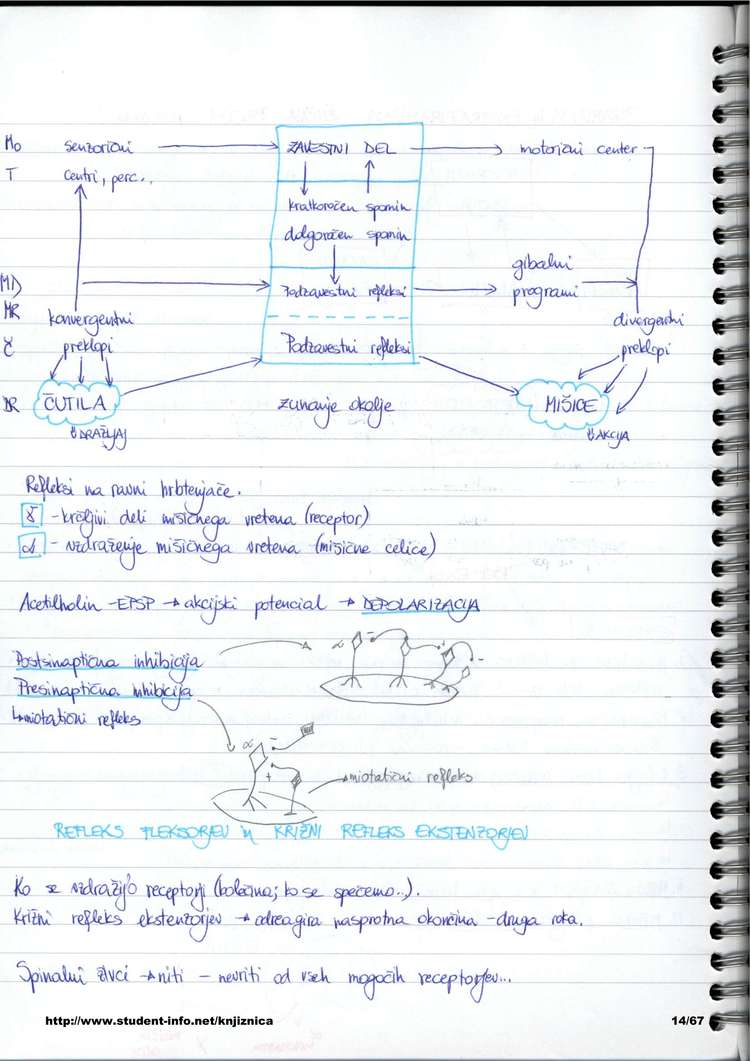 Mo senzorični ZAVESTNI DEL motorični center
T centri, perc...
kratkoročen spomin
dolgoročen spomin
gibalni
MD Podzavestni refleksi programi
MR konvergentni divergentni
Č preklopi Podzavestni refleksi preklopi
DR ČUTILA zunanje okolje MIŠICE
DRAŽLJAJ AKCIJA
Refleksi na ravni hrbtenjače.
γ - krčljivi deli mišičnega vretena (receptor)
α - vzdraženje mišičnega vretena (mišične celice)
Acetilholin - EPSP → akcijski potencial → DEPOLARIZACIJA
Postsinaptična inhibicija
Presinaptična inhibicija
↳ miotatični refleks
α
α
+
miotatični refleks
REFLEKS FLEKSORJEV in KRIŽNI REFLEKS EKSTENZORJEV
Ko se vzdražijo receptorji (bolečina; ko se spečemo..).
Križni refleks ekstenzorjev → odreagira nasprotna okončina - druga roka.
Spinalni živci → niti - nevriti od vseh mogočih receptorjev...
http://www.student-info.net/knjiznica 14/67